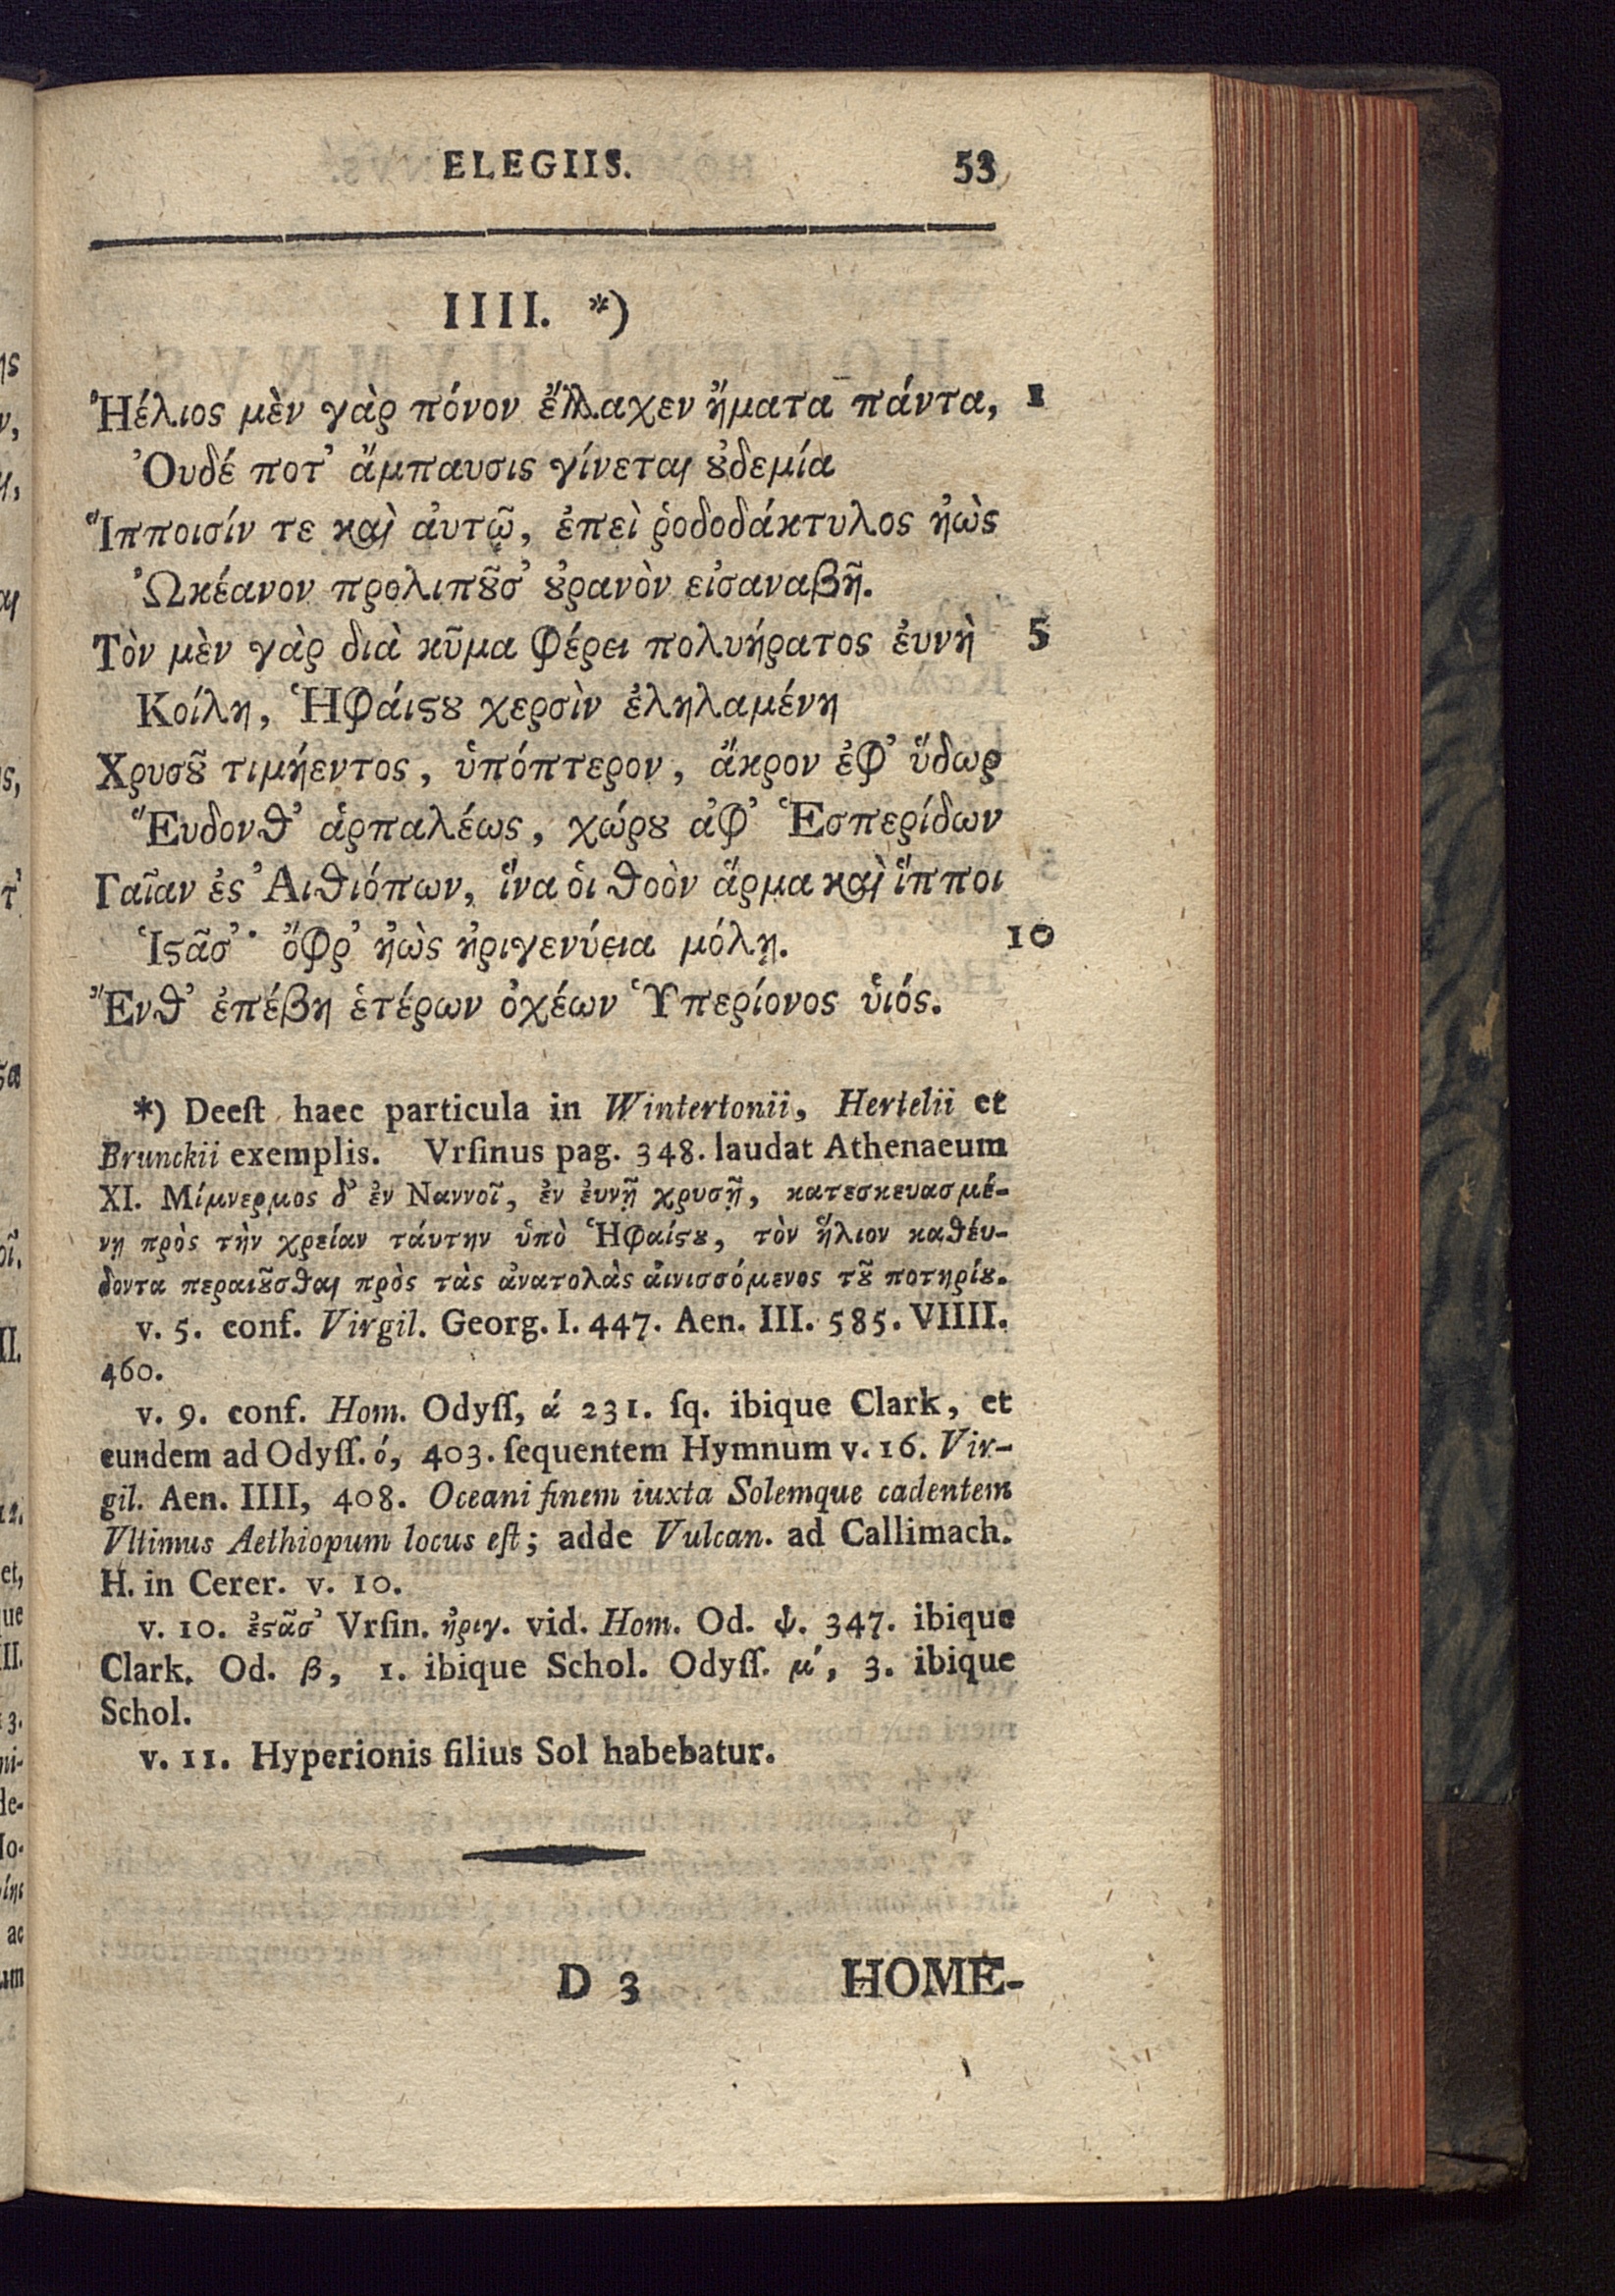 ELEGIIS. 53
IIII. *)
Ἠέλιος μὲν γὰρ πόνον ἔλλαχεν ἤματα πάντα, 1
Ὀυδέ ποτ' ἄμπαυσις γίνεται ȣ̓δεμία
Ἵπποισίν τε καὶ ἀυτῷ, ἐπεὶ ῥοδοδάκτυλος ἠὼς
Ὠκέανον προλιπȣ͂σ' ȣ̓ρανὸν εἰσαναβῆ.
Τὸν μὲν γὰρ διὰ κῦμα φέρει πολυήρατος ἐυνὴ 5
Κοίλη, Ἡφάιϛȣ χερσὶν ἐληλαμένη
Χρυσȣ͂ τιμήεντος, ὑπόπτερον, ἄκρον ἐφ' ὕδωρ
Ἕυδονθ' ἁρπαλέως, χώρȣ ἀφ' Ἑσπερίδων
Γαῖαν ἐς Ἀιθιόπων, ἵνα ὁι θοὸν ἅρμα καὶ ἵπποι
Ἱϛᾶσ'· ὄφρ' ἠὼς ἠριγενύεια μόλῃ. 10
Ἔνθ' ἐπέβη ἑτέρων ὀχέων Ὑπερίονος ὑιός.
*) Deeſt haec particula in Wintertonii, Hertelii et
Brunckii exemplis. Vrſinus pag. 348. laudat Athenaeum
XI. Μίμνερμος δ' ἐν Ναννοῖ, ἐν ἐυνῇ χρυσῇ, κατεσκευασμέ-
νη πρὸς τὴν χρείαν τάυτην ὑπὸ Ἡφαίϛȣ, τὸν ἥλιον καθέυ-
δοντα περαιȣ͂σθαι πρὸς τὰς ἀνατολὰς ἀινισσόμενος τȣ͂ ποτηρίȣ.
v. 5. conf. Virgil. Georg. I. 447. Aen. III. 585. VIIII.
460.
v. 9. conf. Hom. Odyſſ, ά 231. ſq. ibique Clark, et
eundem ad Odyſſ. ό, 403. ſequentem Hymnum v. 16. Vir-
gil. Aen. IIII, 408. Oceani finem iuxta Solemque cadentem
Vltimus Aethiopum locus eſt; adde Vulcan. ad Callimach.
H. in Cerer. v. 10.
v. 10. ἐϛᾶσ' Vrſin. ἠριγ. vid. Hom. Od. ψ. 347. ibique
Clark. Od. β, 1. ibique Schol. Odyſſ. μ', 3. ibique
Schol.
v. 11. Hyperionis filius Sol habebatur.
D 3 HOME-